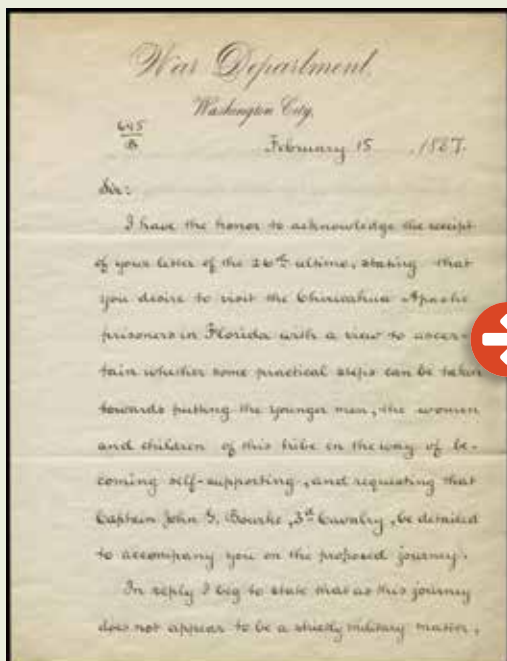 War Department,
Washington City,
645
February 15, 1887.
Sir:
I have the honor to acknowledge the receipt
of your letter of the 26th ultimo, stating that
you desire to visit the Chiricahua Apache
prisoners in Florida with a view to ascer-
tain whether some practical steps can be taken
towards putting the younger men, the women
and children of this tribe in the way of be-
coming self-supporting, and requesting that
Captain John G. Bourke, 3d Cavalry, be detailed
to accompany you on the proposed journey.
In reply I beg to state that as this journey
does not appear to be a strictly military matter,